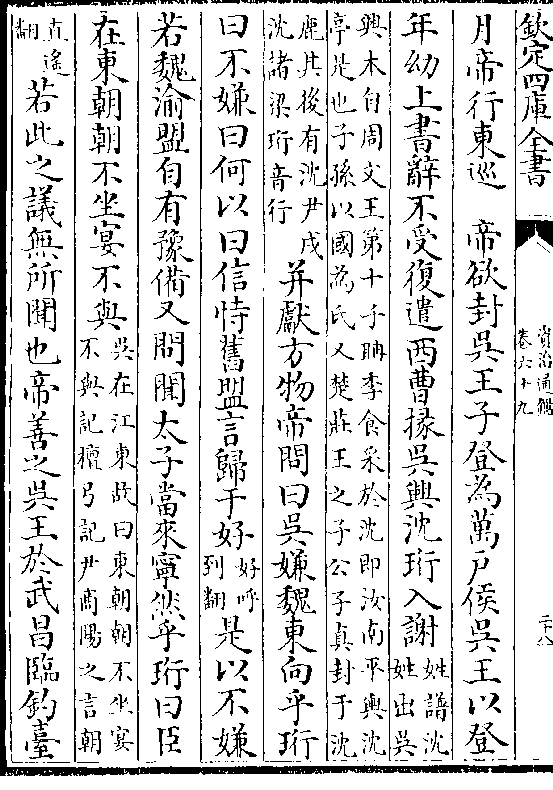 欽定四庫全書
資治通鑑
卷六十九
二十八
月帝行東巡　帝欲封吳王子登為萬戶侯吳王以登
年幼上書辭不受復遣西曹掾吳興沈珩入謝
姓譜沈
姓出吳
興本自周文王第十子聃季食采於沈即汝南平輿沈
亭是也子孫以國為氏又楚莊王之子公子貞封于沈
鹿其後有沈尹戌
沈諸梁珩音行
并獻方物帝問曰吳嫌魏東向乎珩
曰不嫌曰何以曰信恃舊盟言歸于好
好呼
到翻
是以不嫌
若魏渝盟自有豫備又問聞太子當來寧然乎珩曰臣
在東朝朝不坐宴不與
吳在江東故曰東朝朝不坐宴
不與記檀弓記尹商陽之言朝
直遥
翻
若此之議無所聞也帝善之吳王於武昌臨釣臺